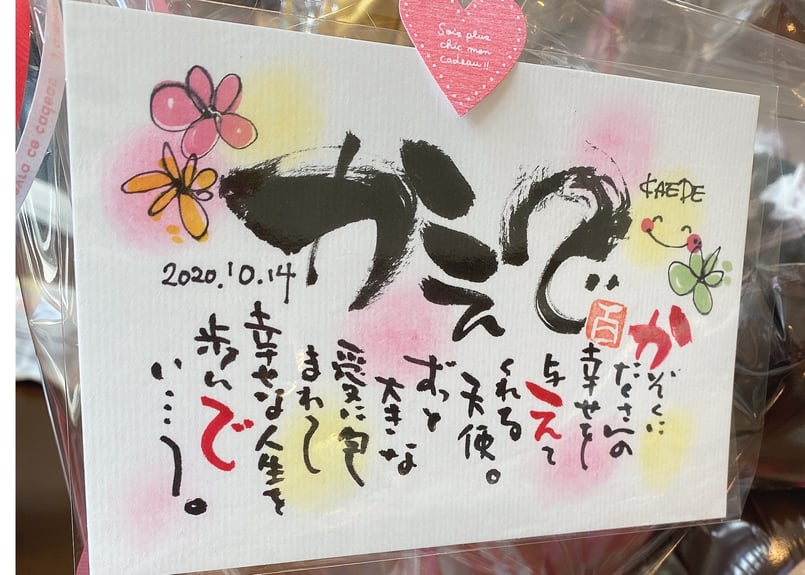 Sois plus
chic mon
cadeau!!
ce cadeau
かえで
KAEDE
2020.10.14
百
かぞくに
たくさんの
幸せを
与えて
くれる
天使。
ずっと
大きな
愛に包
まれ
幸せな人生を
歩んで